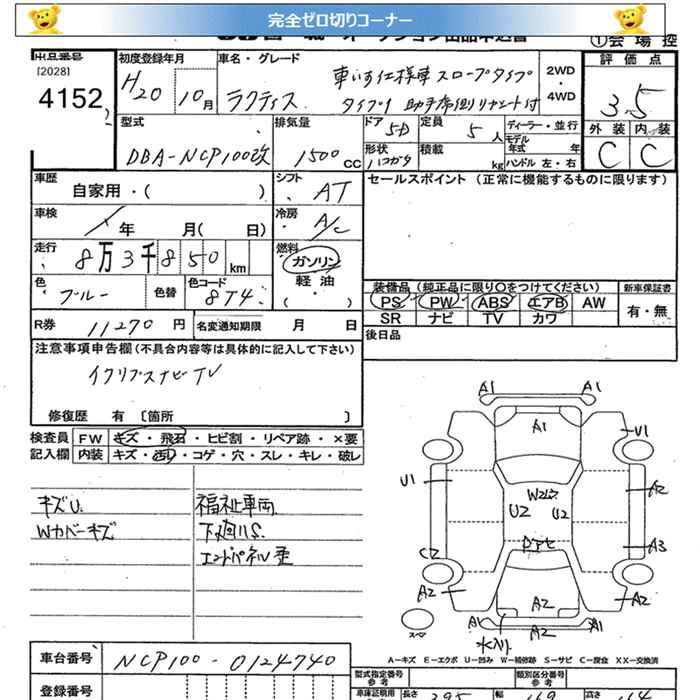 完全ゼロ切りコーナー
出品番号
[2028]
4152
初度登録年月
H20 10月
車名・グレード
ラクティス
車いす仕様車 スロープタイプ
タイプ1 助手席側リヤシート付
2WD
・
4WD
①会場控
評価点
3.5
外装 内装
C C
型式
DBA-NCP100改
排気量
1500cc
ドア 5D
形状
ハコガタ
定員 5人
積載 kg
ディーラー・並行
モデル
年式 年
ハンドル 左・右
車歴
自家用・( )
シフト
AT
セールスポイント(正常に機能するものに限ります)
車検
年 月( 日)
冷房
A/C
走行
8万3千850km
燃料
ガソリン
・
軽油
・
( )
色
ブルー
色替
色コード
8T4
装備品(純正品に限り○をつけてください)
PS PW ABS エアB AW
SR ナビ TV カワ
新車保証書
有・無
R券 11270円
名変通知期限 月 日
後日品
注意事項申告欄(不具合内容等は具体的に記入して下さい)
イクリプスナビTV
修復歴 有〔箇所 〕
検査員
記入欄
FW キズ・飛石・ヒビ割・リペア跡・×要
内装 キズ・西・コゲ・穴・スレ・キレ・破レ
キズU.
Wカバーキズ
福祉車両
下廻りS.
エンドパネル歪
A1 A1
A1
U1
U1
A2
U2 U2
C2
A3
A2
A2
A2
A1 A2 A1
水入り
スペア
A-キズ E-エクボ U-凹み W-補修跡 S-サビ C-腐食 XX-交換済
車台番号
NCP100-0124740
登録番号
型式指定番号
参考
類別区分番号
参考
車庫証明用
長さ 395 幅 169 高さ 164